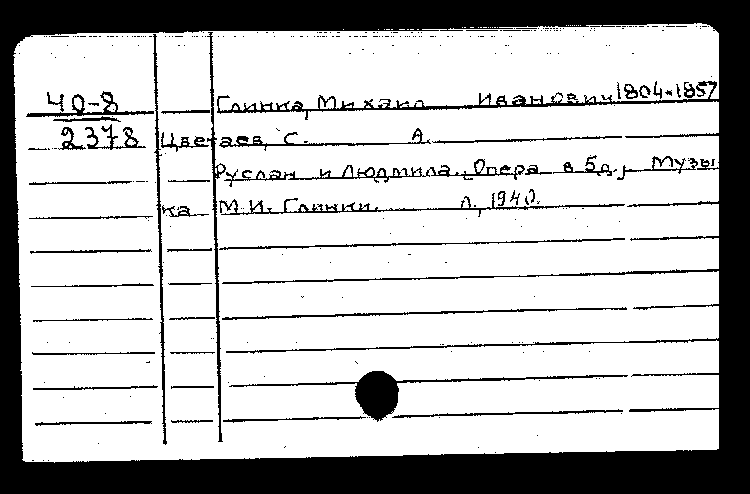 40-8 Глинка, Михаил Иванович 1804-1857
2378 Цветаев, С. А.
Руслан и Людмила. Опера в 5д., Музы
ка М.И. Глинки. Л., 1940.